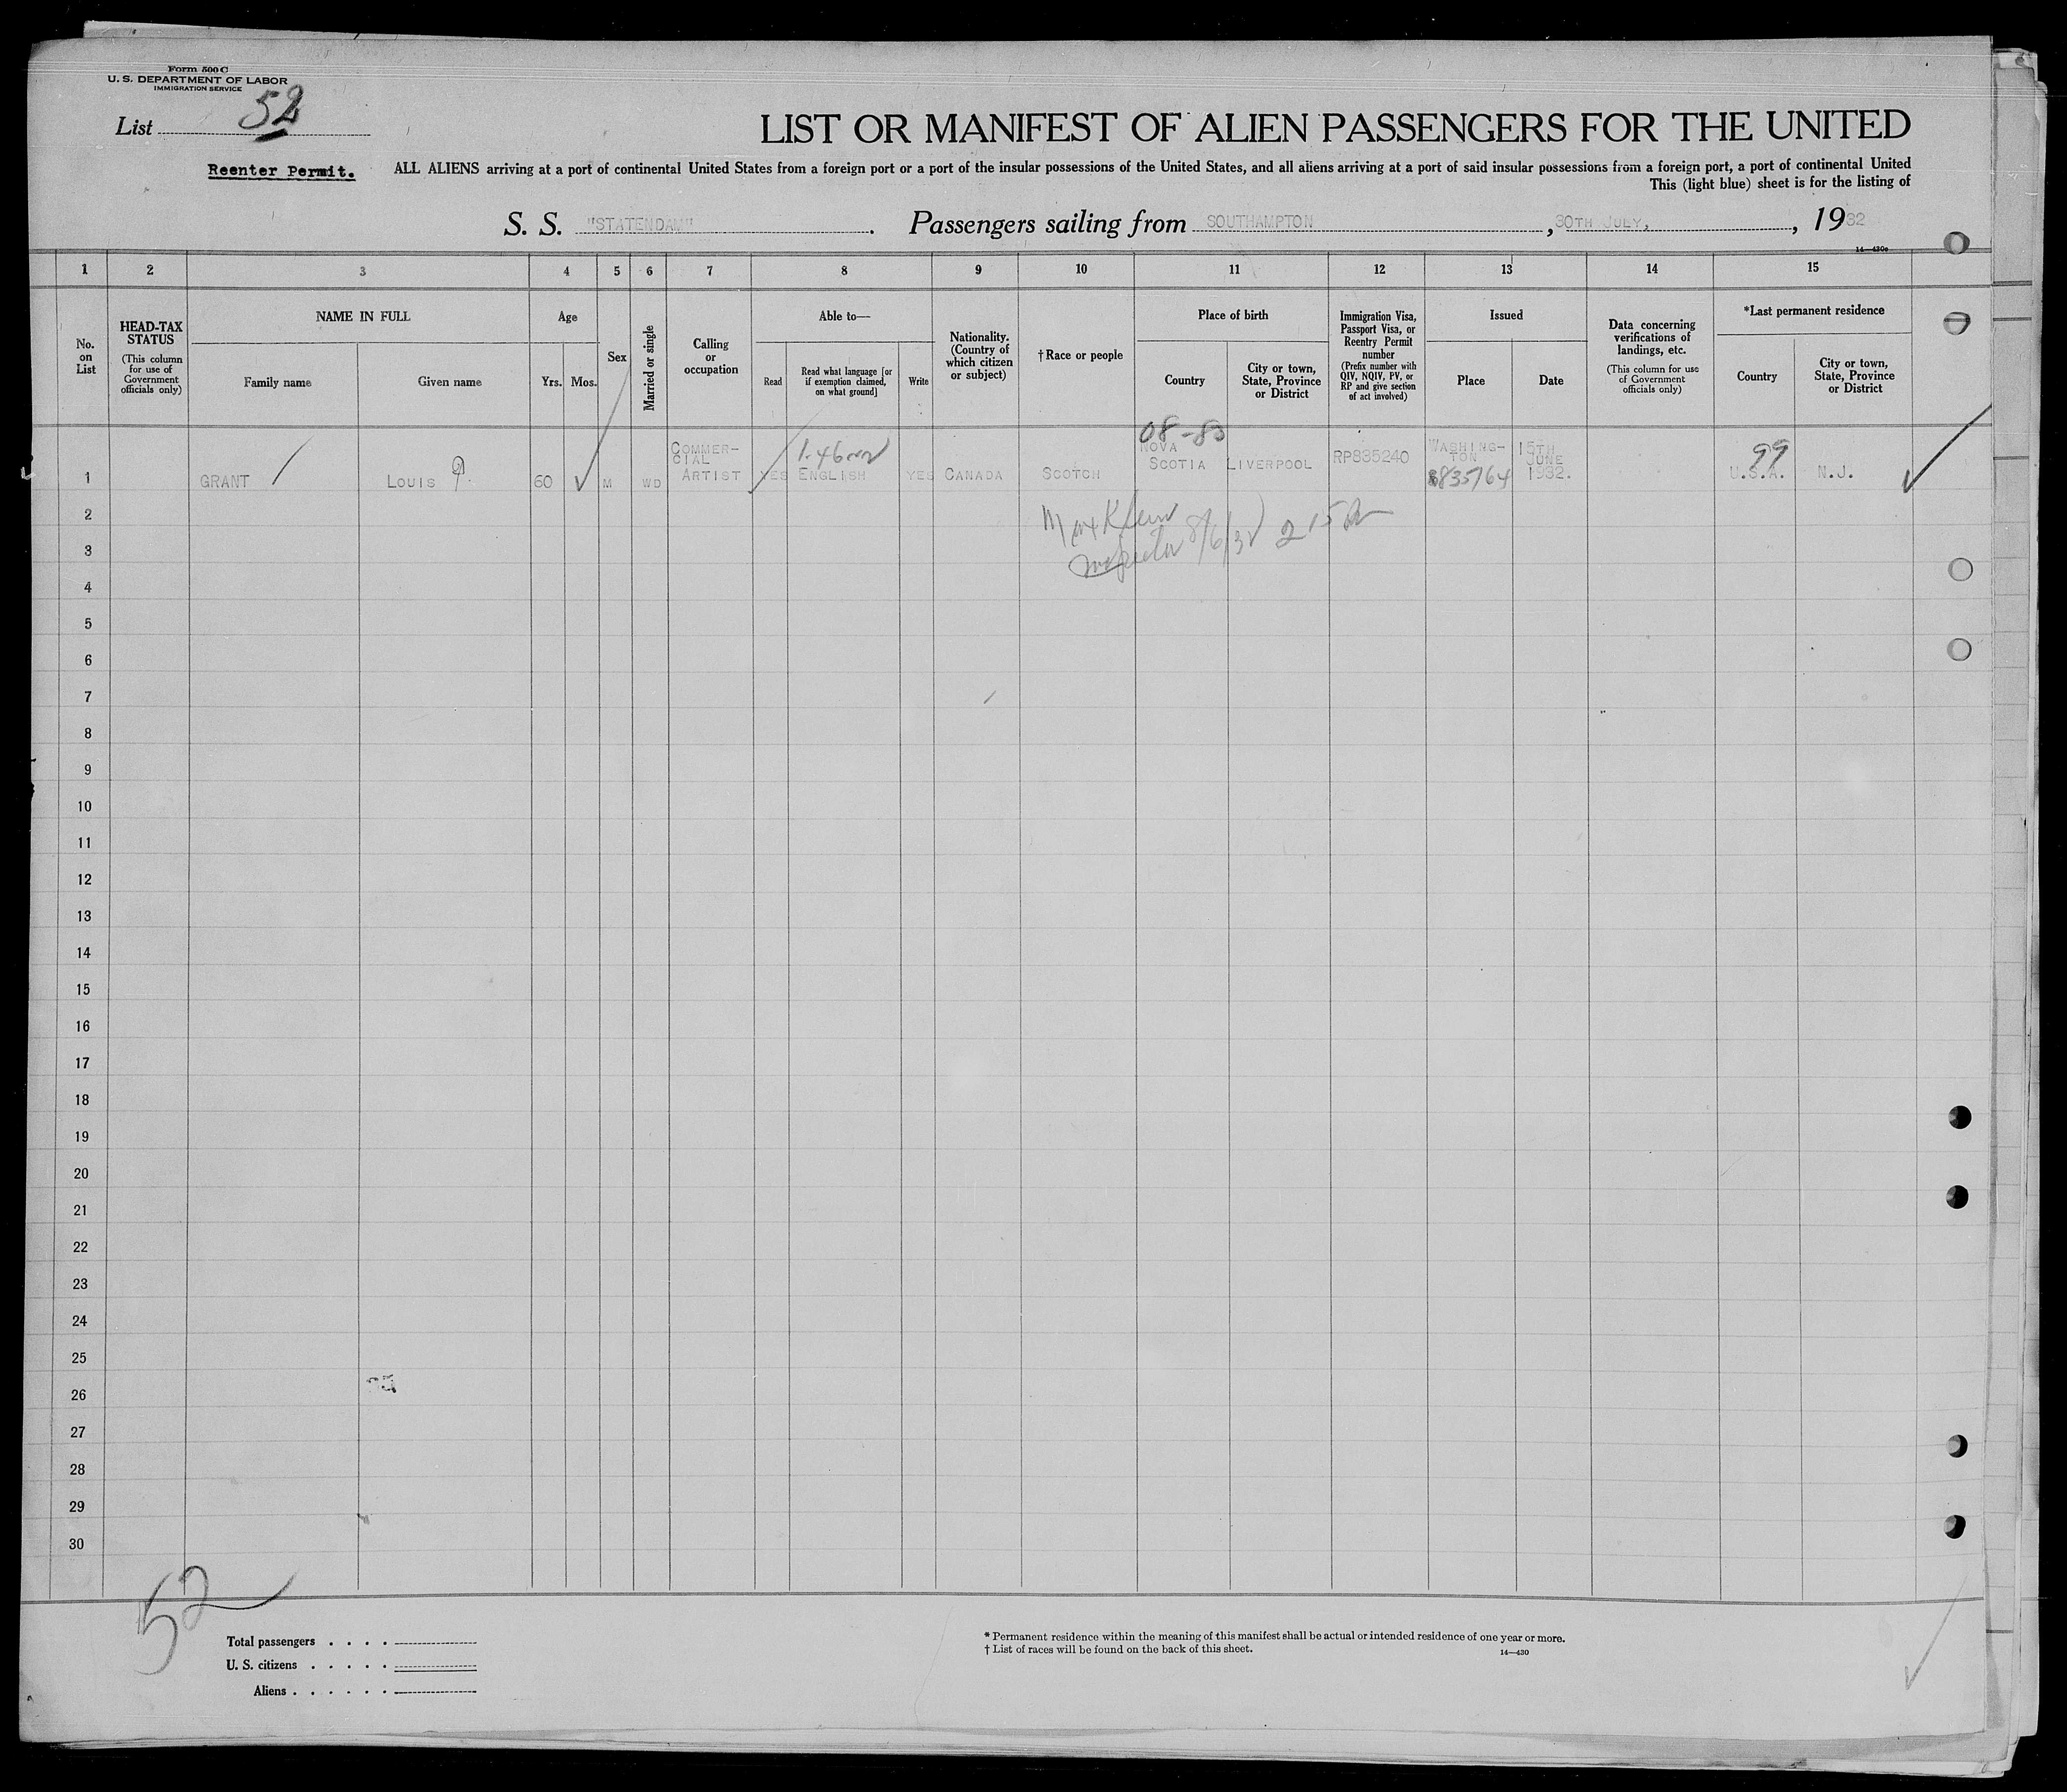 Form 500 C
U. S. DEPARTMENT OF LABOR
IMMIGRATION SERVICE
List 52
LIST OR MANIFEST OF ALIEN PASSENGERS FOR THE UNITED
Reenter Permit.
ALL ALIENS arriving at a port of continental United States from a foreign port or a port of the insular possessions of the United States, and all aliens arriving at a port of said insular possessions from a foreign port, a port of continental United
This (light blue) sheet is for the listing of
S. S. "STATENDAM". Passengers sailing from SOUTHAMPTON, 30TH JULY, , 1932
14—430c
1 2 3 4 5 6 7 8 9 10 11 12 13 14 15
No. on List
HEAD-TAX STATUS
(This column for use of Government officials only)
NAME IN FULL
Family name
Given name
Age
Yrs. Mos.
Sex
Married or single
Calling or occupation
Able to—
Read
Read what language [or if exemption claimed, on what ground]
Write
Nationality. (Country of which citizen or subject)
† Race or people
Place of birth
Country
City or town, State, Province or District
Immigration Visa, Passport Visa, or Reentry Permit number
(Prefix number with QIV, NQIV, PV, or RP and give section of act involved)
Issued
Place
Date
Data concerning verifications of landings, etc.
(This column for use of Government officials only)
*Last permanent residence
Country
City or town, State, Province or District
08-83
99
1 GRANT LOUIS 60 M WD COMMERCIAL ARTIST YES ENGLISH YES CANADA SCOTCH NOVA SCOTIA LIVERPOOL RP835240 WASHINGTON 15TH JUNE 1932. U.S.A. N.J.
835764
Max Klein
Inspector 8/6/32 2 15
2
3
4
5
6
7
8
9
10
11
12
13
14
15
16
17
18
19
20
21
22
23
24
25
26
27
28
29
30
52
Total passengers . . . .
U. S. citizens . . . . .
Aliens . . . . . .
* Permanent residence within the meaning of this manifest shall be actual or intended residence of one year or more.
† List of races will be found on the back of this sheet.
14—430